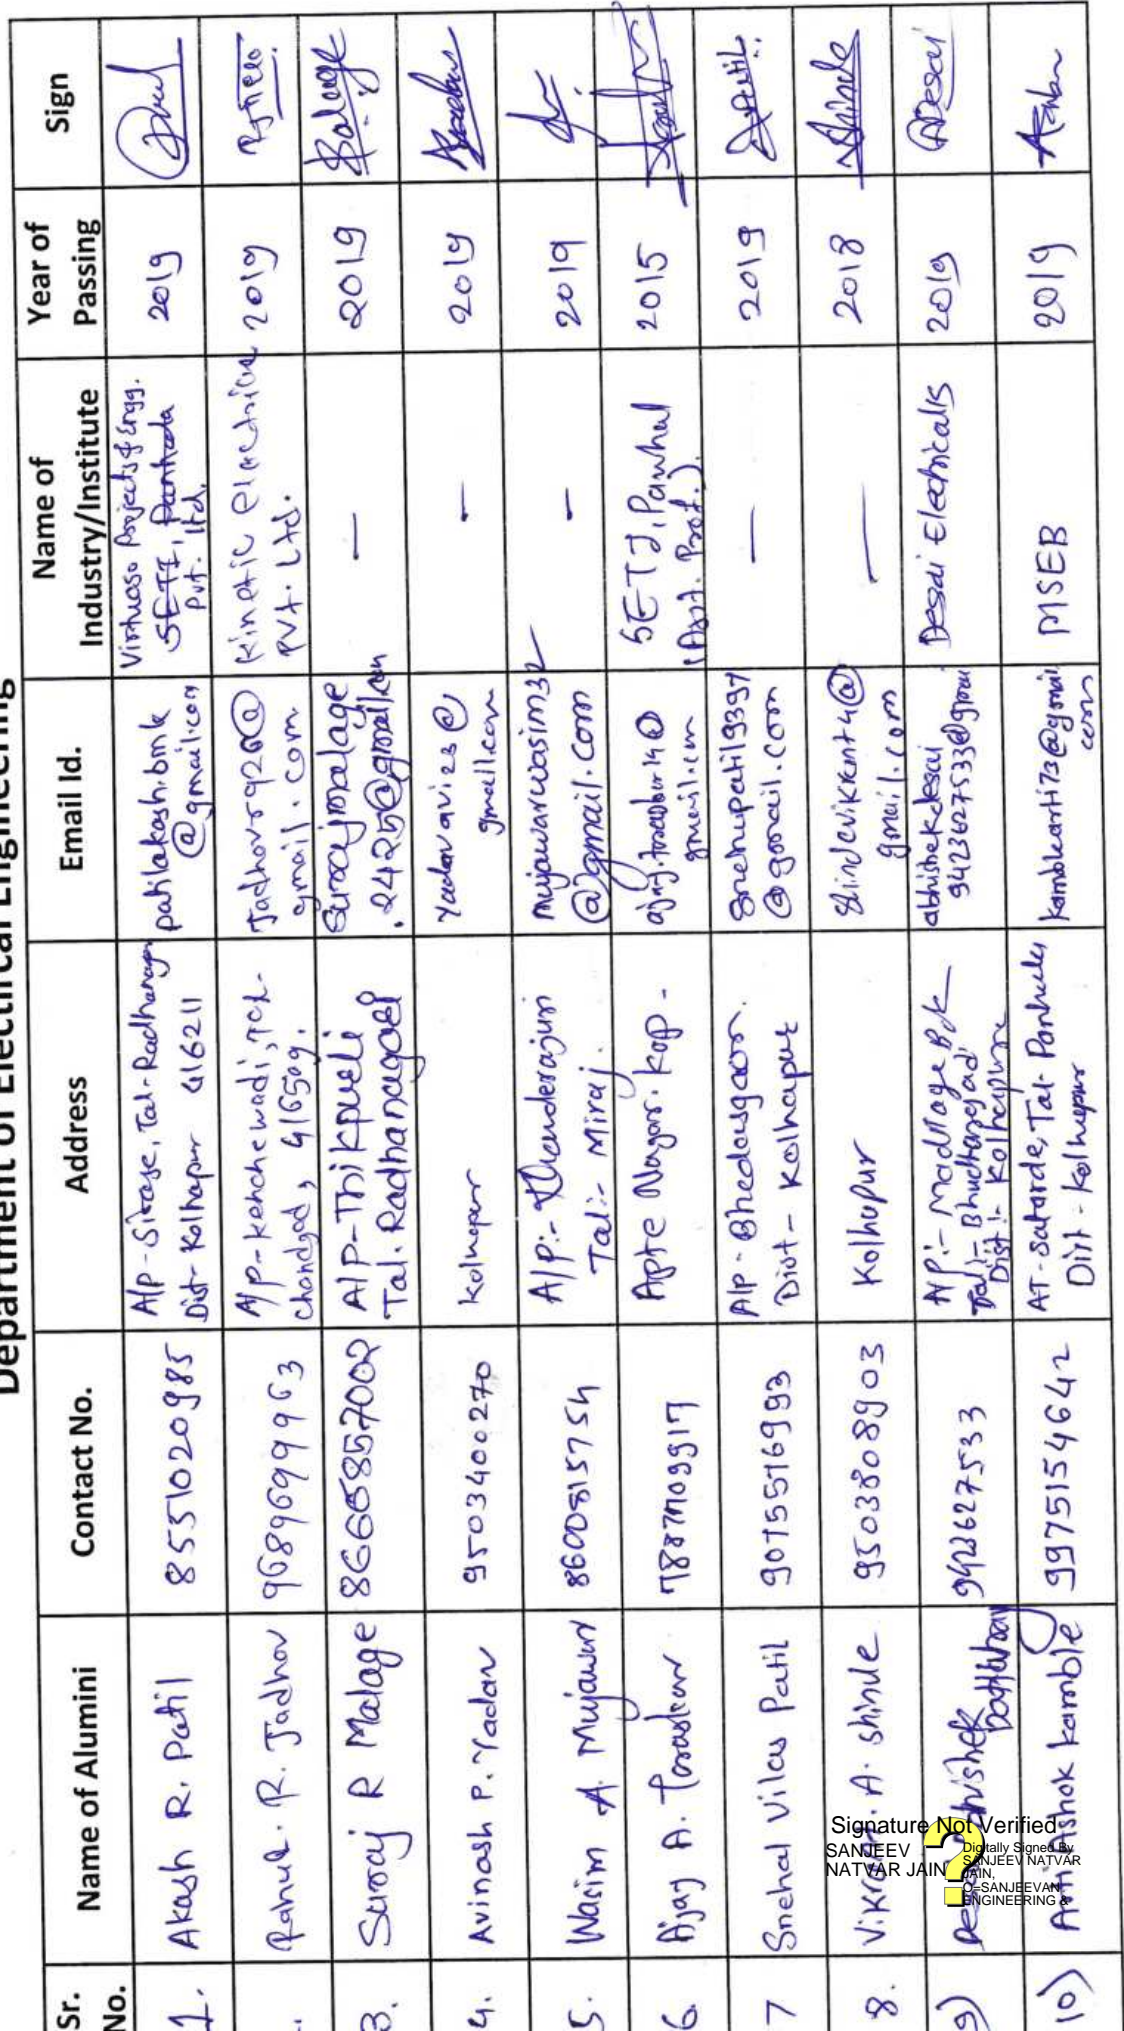 Department of Electrical Engineering
Sr. No.
Name of Alumini
Contact No.
Address
Email Id.
Name of Industry/Institute
Year of Passing
Sign
1.
Akash R. Patil
8551020985
A/P - Sirase, Tal-Radhanagar
Dist- Kolhapur 416211
patilakash.bmk
@gmail.com
Virtuoso Projects & Engg.
SETI, Panhala
Pvt. ltd.
2019
Rahul. R. Jadhav
9689699963
A/P-Kenchewadi,
chandgad, 416509.
Jadhavrr926@
gmail.com
Kinetic electrical
PVt. Ltd.
2019
3.
Suraj R Malage
86665857002
A/P-Thikpurli
Tal. Radhanagari
Surajmalage
.2425@gmail.com
—
2019
Malage
4.
Avinash P. Yadav
9503400270
Kolhapur
Yadavavi23@
gmail.com
—
2019
5.
Wasim A. Mujawar
8600815754
A/P:- Khanderajuri
Tal:- Miraj.
mujawarwasim32
@gmail.com
—
2019
6.
Ajay A.
7887709917
Apte Nagar. Kop.
gmail.com
SETI, Panhal
(Asst. Prof.)
2015
7
Snehal Vilas Patil
9075576993
A/P - Bhedasgaon.
Dist - Kolhapur
Snehupatil9397
@gmail.com
—
2019
Patil
8.
Vikrant. A. Shinde
9503808903
Kolhapur
Shindevikrant4@
gmail.com
—
2018
Shinde
9)
Abhishek
Dattatray
9423627533
A/P:- Madilage Bk
Tal:- Bhudargad
Dist:- Kolhapur
abhishekdesai
9423627533@gmai
Desai Electricals
2019
ADesai
10)
Arti Ashok Kamble
9975154642
AT-Satarde, Tal- Panhala
Dist- Kolhapur
kamblearti73@gmail.
com
MSEB
2019
Signature Not Verified
SANJEEV
NATVAR JAIN
Digitally Signed By
SANJEEV NATVAR
JAIN,
O=SANJEEVAN
ENGINEERING &